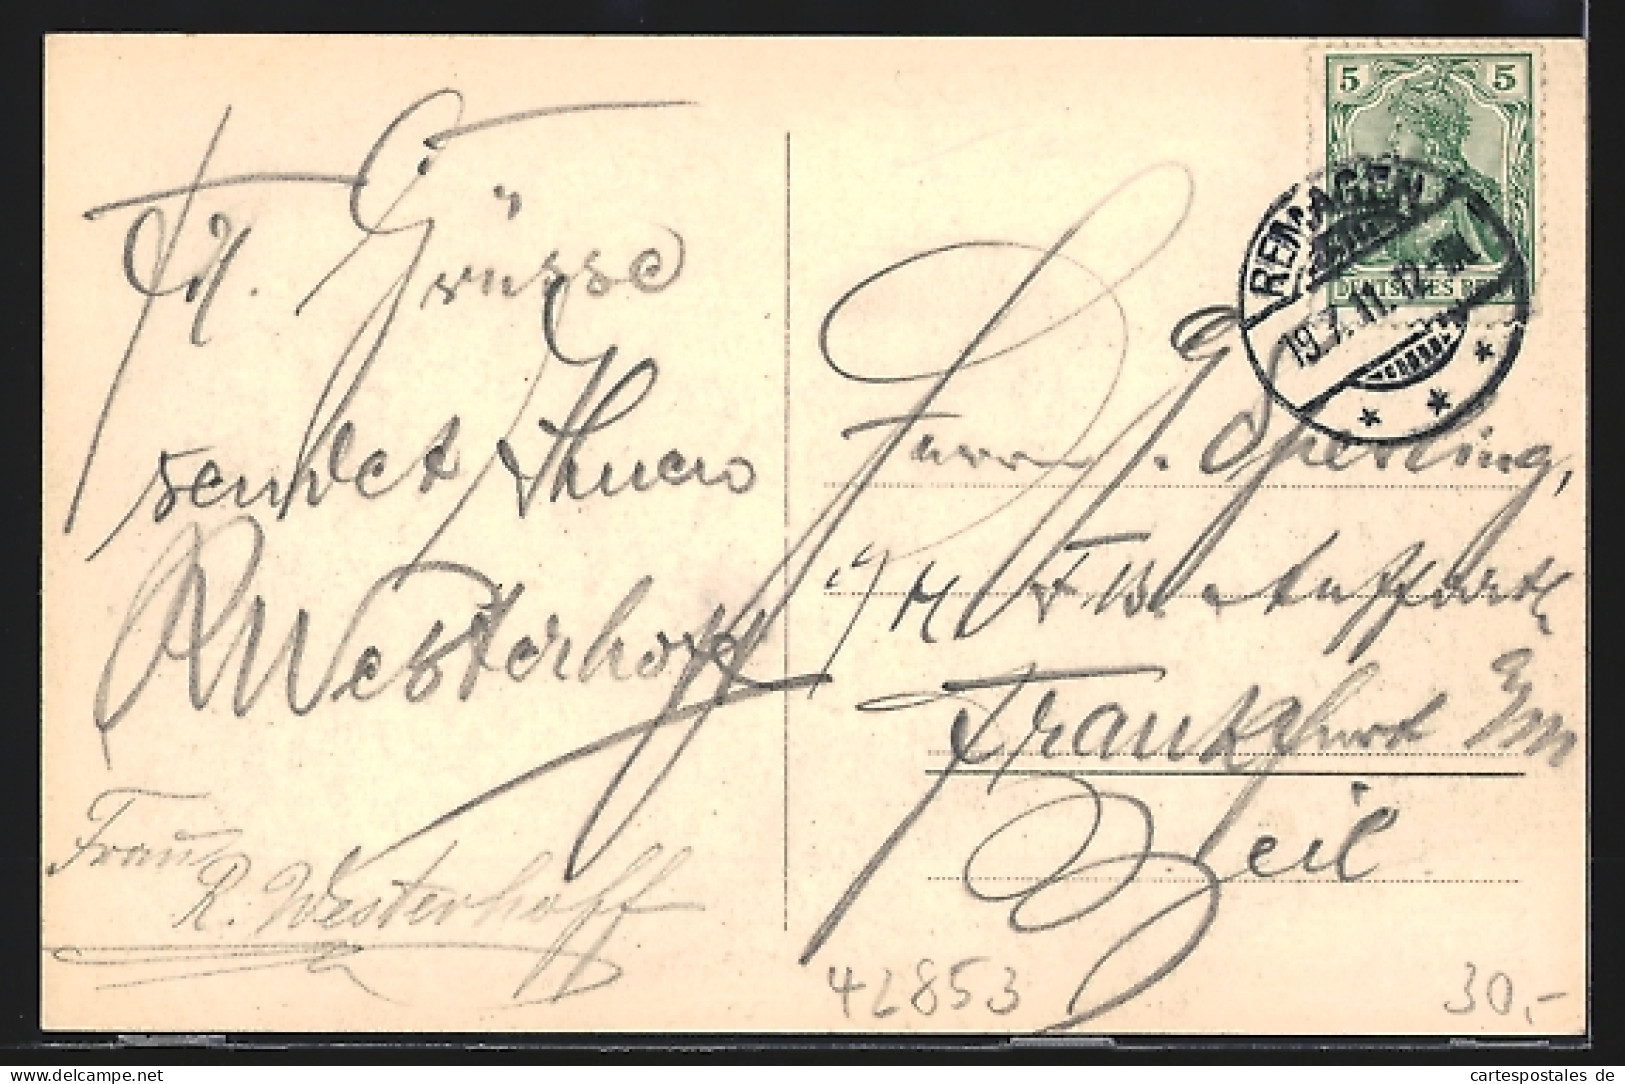 Frl. Grüsse
sendet Ihnen
R Westerhoff
Frau
R. Westerhoff
5 5
DEUTSCHES REICH
REMAGEN
19.7.11. 12-1N
Herrn J. Sperling,
Frankfurt a/m
Zeil
42853
30,-
cartespostales de